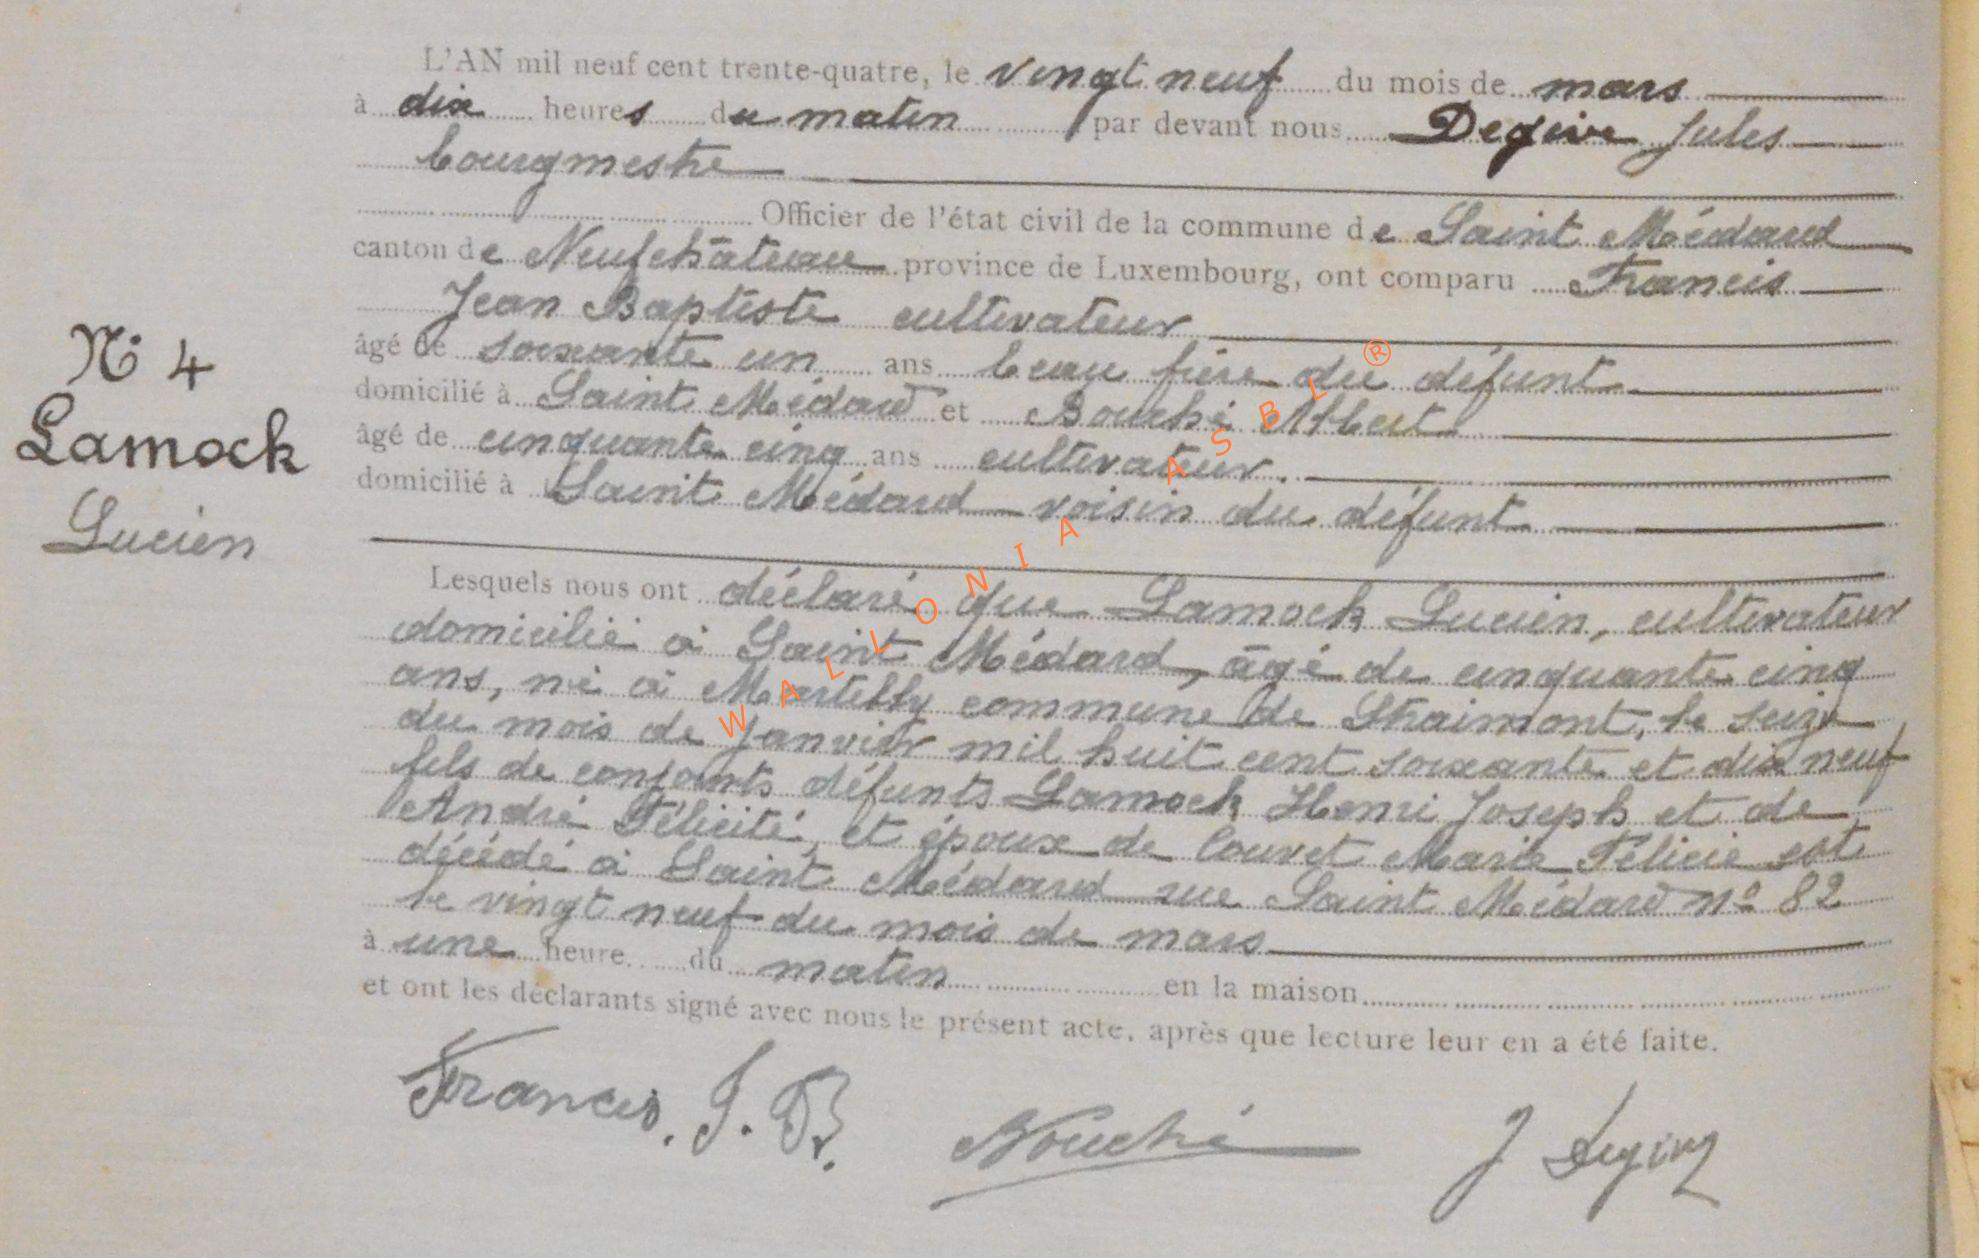 L'AN mil neuf cent trente-quatre, le vingt neuf du mois de mars
à dix heures du matin par devant nous Degive Jules
bourgmestre
Officier de l'état civil de la commune de Saint Médard
canton de Neufchâteau province de Luxembourg, ont comparu Francis
Jean Baptiste cultivateur
âgé de soixante un ans beau frère du défunt
domicilié à Saint Médard et Bouché Albert
âgé de cinquante cinq ans cultivateur.
domicilié à Saint Médard voisin du défunt
N° 4
Lamock
Lucien
Lesquels nous ont déclaré que Lamock Lucien, cultivateur
domicilié à Saint Médard, âgé de cinquante cinq
ans, né à Martilly commune de Straimont, le seize
du mois de janvier mil huit cent soixante et dix neuf
fils de conjoints défunts Lamock Henri Joseph et de
André Félicité, et époux de Couvet Marie Félicie est
décédé à Saint Médard rue Saint Médard n° 82
le vingt neuf du mois de mars
à une heure du matin en la maison
et ont les déclarants signé avec nous le présent acte, après que lecture leur en a été faite.
Francis. J. B.
Bouché
J Degive
WALLONIA ASBL ®